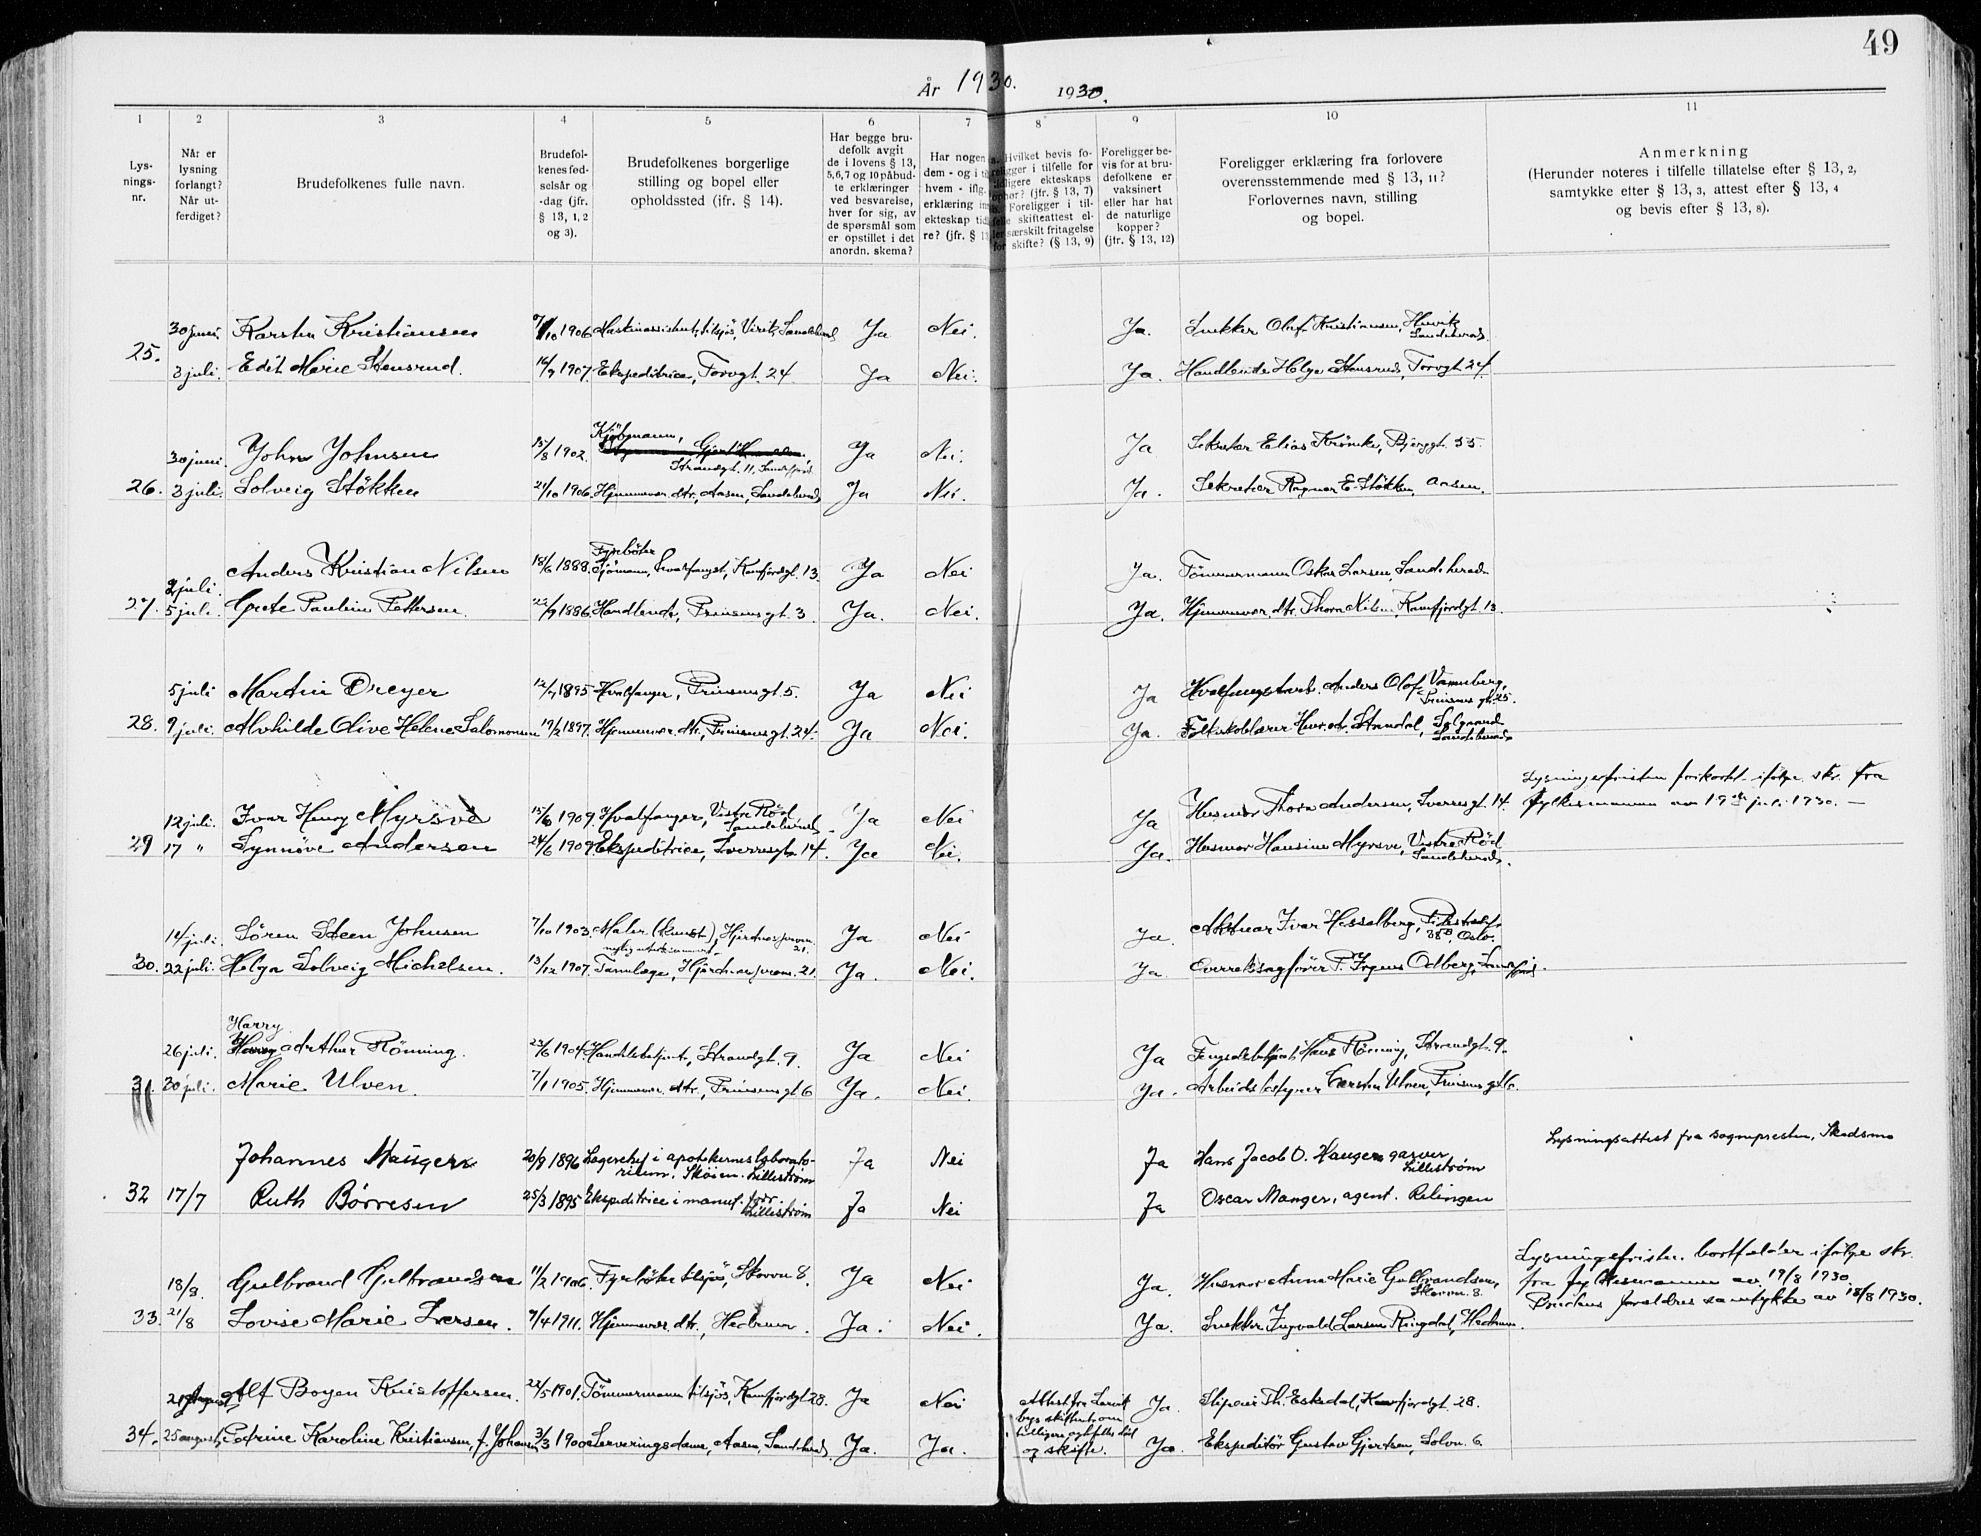 49
År 1930. 1930.
1 2 3 4 5 6 7 8 9 10 11
Lys-
nings-
nr.
Når er
lysning
forlangt?
Når ut-
ferdiget?
Brudefolkenes fulle navn.
Brudefol-
kenes fød-
selsår og
-dag (jfr.
§ 13, 1, 2
og 3).
Brudefolkenes borgerlige
stilling og bopel eller
opholdssted (jfr. § 14).
Har begge bru-
defolk avgit
de i lovens § 13,
5,6,7 og 10 påbud-
te erklæringer
ved besvarelse,
hver for sig, av
de spørsmål som
er opstillet i det
anordn. skema?
Har nogen
dem - og i
hvem - iflg.
erklæring
ekteskap
re? (jfr. §
Hvilket bevis fo-
religger i tilfelle for
tidligere ekteskaps
ophør? (jfr. § 13, 7)
Foreligger i til-
felle skifteattest el-
ler særskilt fritagelse
for skifte? (§ 13, 9)
Foreligger be-
vis for at bru-
defolkene er
vaksinert
eller har hat
de naturlige
kopper?
(jfr. § 13, 12)
Foreligger erklæring fra forlovere
overensstemmende med § 13, 11?
Forlovernes navn, stilling
og bopel.
Anmerkning
(Herunder noteres i tilfelle tillatelse efter § 13, 2,
samtykke efter § 13, 3, attest efter § 13, 4
og bevis efter § 13, 8).
30 juni. Karsten Kristiansen 7/10 1906 Maskinassistent, tilsjøs, Virik, Sandeherred Ja Nei. Ja. Snekker Olaf Kristiansen,
Sandeherred.
25. 3 juli. Edit Marie Stensrud. 1907. Ekspeditrice, Torvgt. 24 Ja Nei. Ja. Handlende Helge Stensrud, Torvgt 24.
Kjöbmann,
30 juni. John Johnsen 15/8 1902. Strandgt. 11, Sandefjord. Ja Nei. Ja Elias Bjerggt. 55.
26. 3 juli. Solveig Stökken 21/10 1906. Hjemmevær. dtr., Aasen, Sandeherred Ja Nei. Ja. Sekretær Ragnar E. Stökken, Aasen.
Fyrböter
2 juli. Anders Kristian Nilsen 18/6 1888. Sjömann, hvalfangst, Kamfjordgt. 13. Ja Nei Ja. Tömmermann Oskar Larsen, Sandeherred
27. 5 juli. Grete Pauline Pettersen. 22/9 1886. Handlende, Prinsensgt. 3. Ja. Nei. Ja. Hjemmevær. dtr. Thora Nilsen, Kamfjordgt. 13.
5 juli Martin Dreyer 12/7 1895 Hvalfanger, Prinsensgt. 5. Ja Nei Ja Hvalfangstarb. Anders Olaf
Prinsens gt. 25.
28. 9 juli. Alvhilde Olive Helene Salomonsen 19/2 1897. Hjemmevær. dtr., Prinsensgt. 24. Ja Nei. Ja. Folkeskolelærer
Sandeherred
Lysningsfristen forkortet ifølge skr. fra
fylkesmannen av 19de juli 1930. —
12 juli. Ivar Henry Myrsve 15/6 1909. Hvalfanger, Vestre Röd
Sandeherred. Ja Nei Ja Husmor Thora Andersen, Sverresgt. 14.
29 17 " Synnöve Andersen 24/6 1909 Ekspeditrice, Sverresgt. 14. Ja Nei. Ja. Husmor Hansine Myrsve, Vestre Röd
Sandeherred.
14 juli. Sören Steen Johnsen 7/10 1903. Maler (kunst), Hjertnesprom.
21. Ja Nei Ja. Aktuar Ivar Hesselberg,
38B, Oslo.
30. 22 juli. Helga Solveig Michelsen. 13/12 1907. Tannlæge, Hjertnesprom. 21. Ja. Nei. Ja Overretssagfører Odberg,
Harry
26 juli. Arthur Rönning. 23/6 1904. Handelsbetjent, Strandgt. 9. Ja Nei Ja Fengselsbetjent Hans Rönning, Strandgt. 9.
31 30 juli. Marie Ulven. 7/1 1905. Hjemmevær. dtr., Prinsensgt. 6 Ja. Nei. Ja. Arbeidsbestyrer Carsten Ulven, Prinsensgt. 6.
Lysningsattest fra sognepresten, Skedsmo
Johannes Haugen 20/9 1896 Lagerchef i apotekernes laborato-
rium. Skøien. Lillestrøm Ja Nei Ja Hans Jacob O. Haugen, garver
Lillestrøm
32 17/7 Ruth Börresen 25/3 1895 Ekspeditrice i manuf. forr.
Lillestrøm Ja Nei Ja Oscar Manger, agent. Rælingen
Lysningsfristen bortfalder ifølge skr.
fra fylkesmannen av 19/8 1930.
Brudens foreldres samtykke av 18/8 1930.
18/8. Gulbrand Gulbrandsen 11/2 1906. Fyrböter tilsjös, Skovvn 8. Ja Nei Ja. Husmor Anna Marie Gulbrandsen,
Skovvn. 8.
33. 21/8 Lovise Marie Larsen. 7/4 1911. Hjemmevær. dtr., Hedrum. Ja. Nei. Ja. Snekker Ingvald Larsen Ringdal, Hedrum.
21 august Alf Boyen Kristoffersen. 22/5 1901. Tömmermann tilsjös, Kamfjordgt 28. Ja Nei Attest fra Larvik
bys skifterett om
tidligere ektefelles död
og skifte. Ja. Slipeier Th. Eskedal, Kamfjordgt. 28.
34. 25 august, Petrine Karoline Kristiansen, f. Johansen 3/3 1900 Serveringsdame, Aasen, Sandeherred. Ja. Ja. Ja. Ekspeditör Gustav Gjertsen, Solvn. 6.